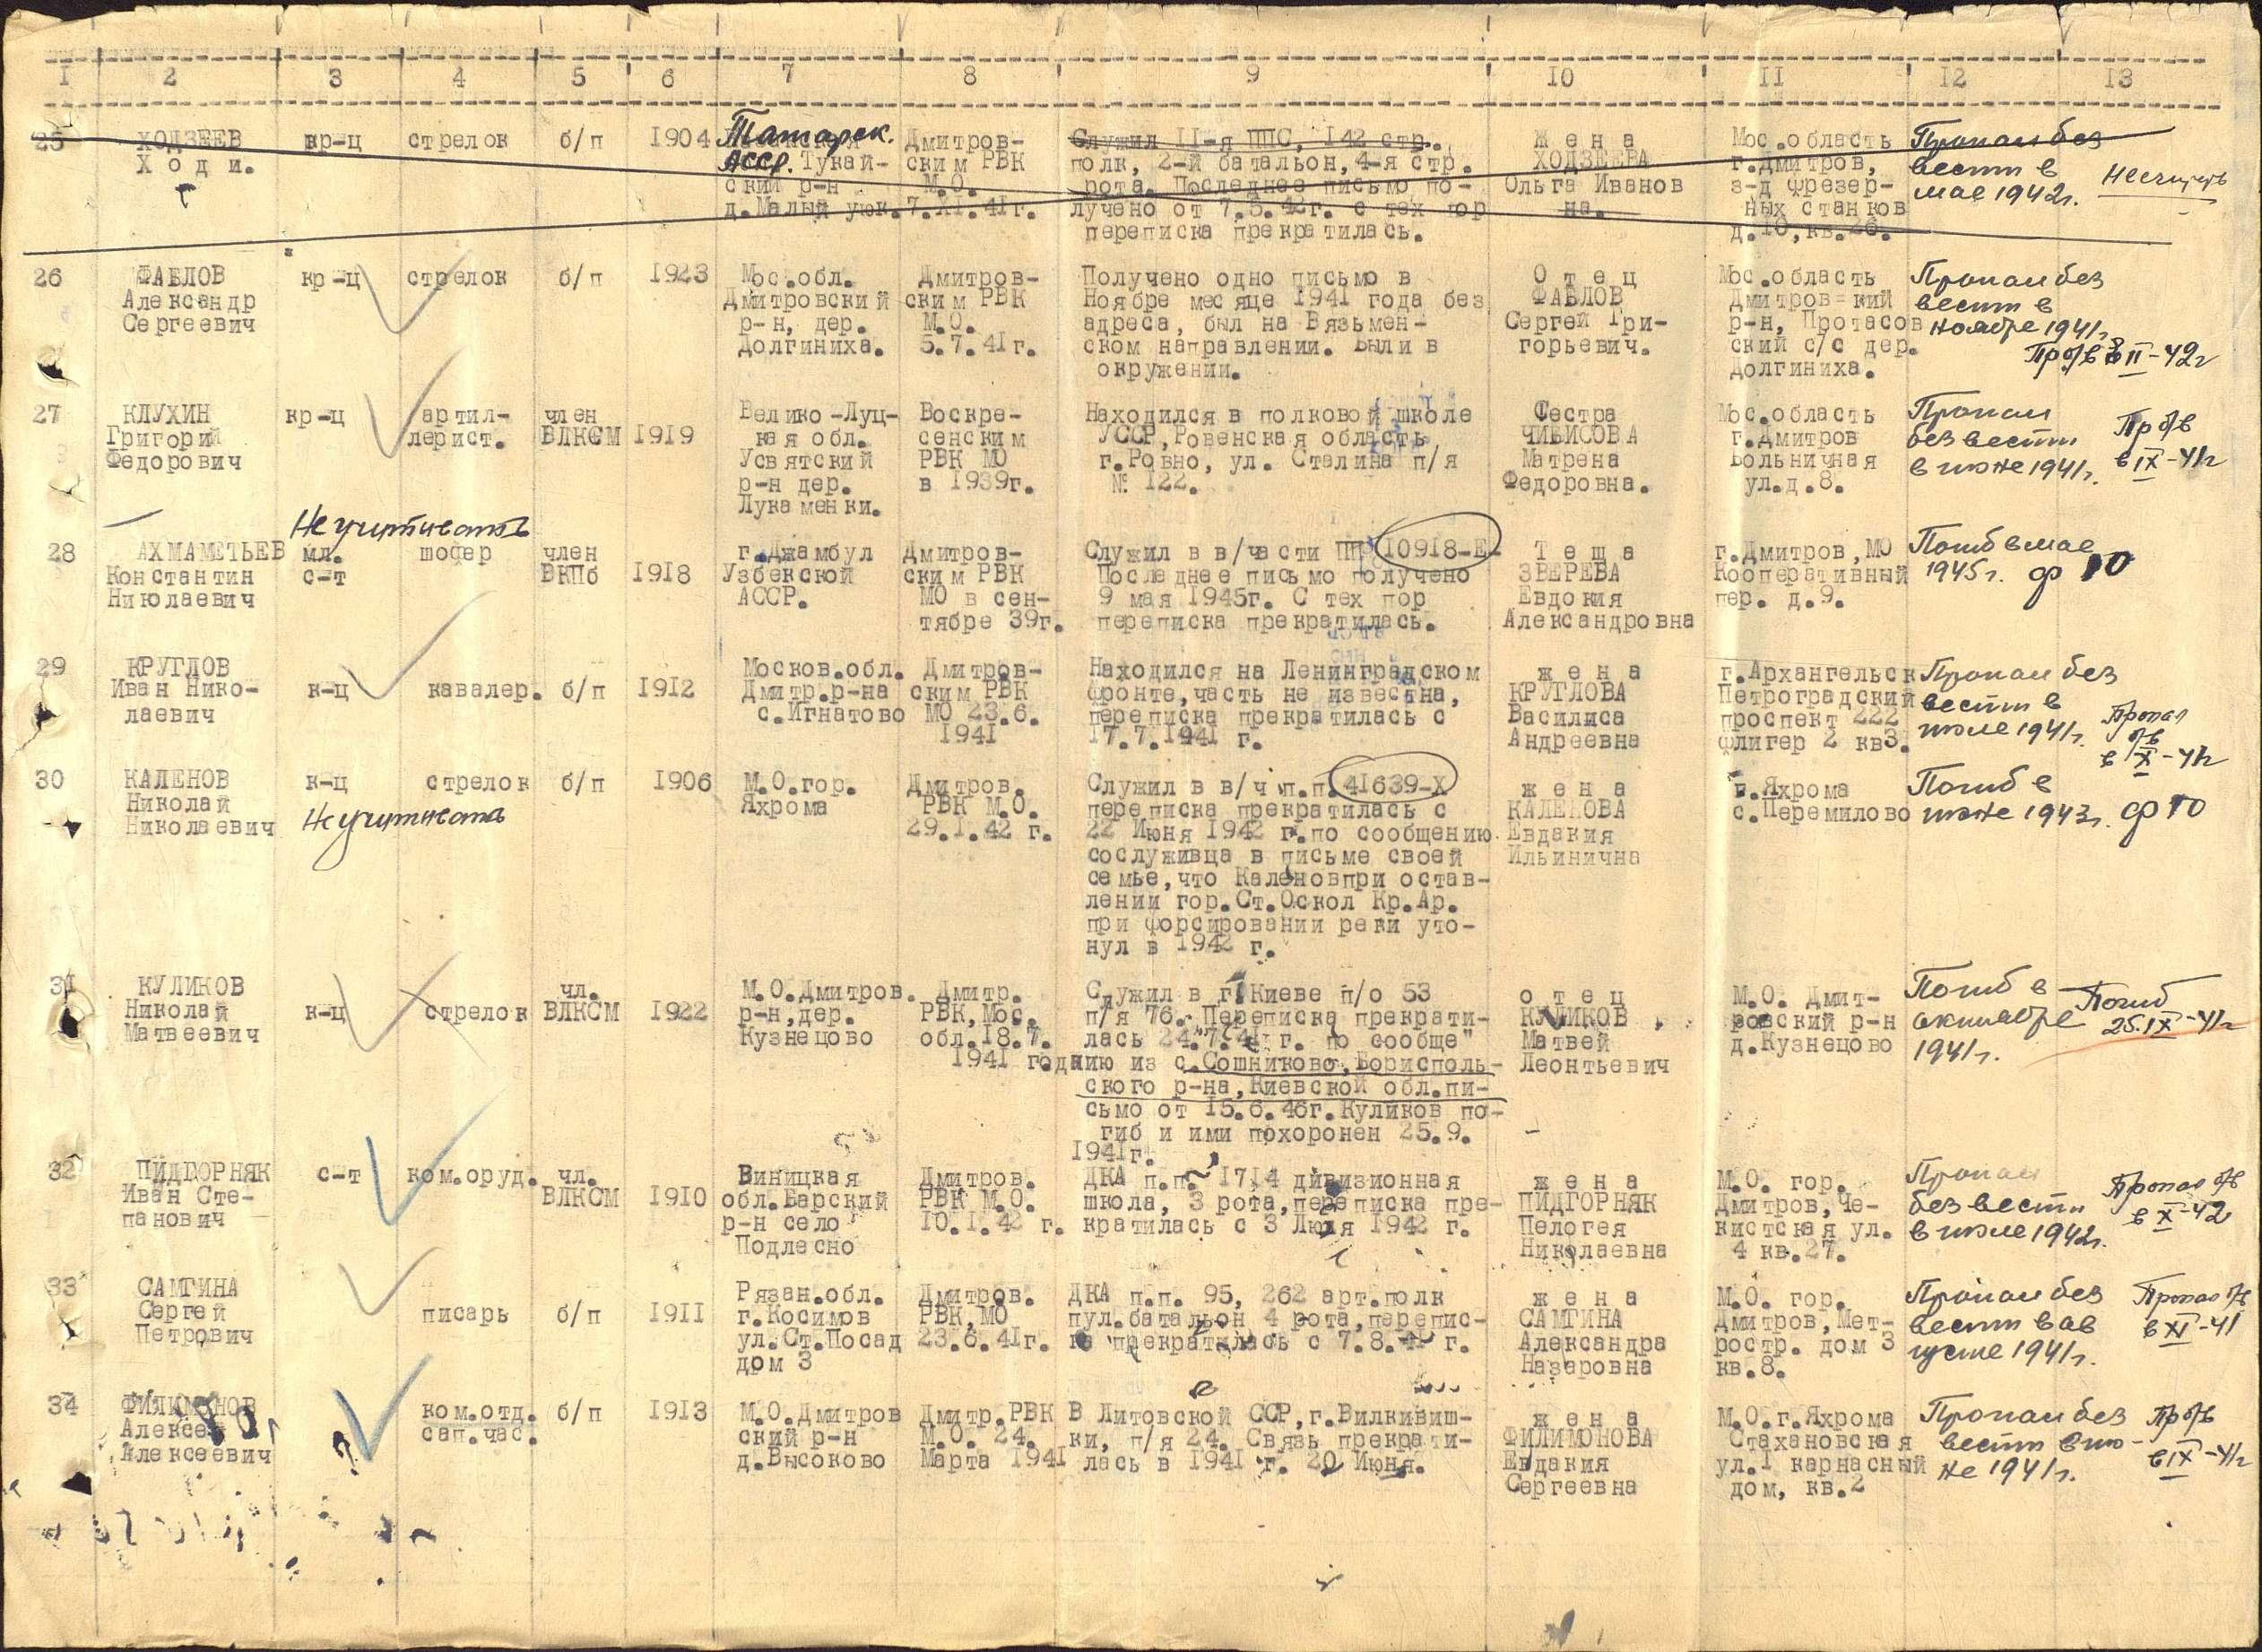 1 2 3 4 5 6 7 8 9 10 11 12 13
25 ХОДЗЕЕВ кр-ц стрелок б/п 1904 Татарск. Дмитров- Служил II-я ППС, 142 стр. Жена Мос.область Пропал без
Ходи. АССР. Тукай- ским РВК полк, 2-й батальон, 4-я стр. ХОДЗЕЕВА г.Дмитров, вести в
ский р-н М.О. рота. Последнее письмо по- Ольга Иванов з-д фрезер- мае 1942г.
д.Малый 7.XI.41г. лучено от 7.5.42г. с тех пор на. ных станков
переписка прекратилась. д.10,кв.26.
26 ФАБЛОВ кр-ц стрелок б/п 1923 Мос.обл. Дмитров- Получено одно письмо в Отец Мос.область Пропал без
Александр Дмитровский ским РВК Ноябре месяце 1941 года без ФАБЛОВ Дмитров=кий вести в
Сергеевич р-н, дер. М.О. адреса, был на Вязьмен- Сергей Гри- р-н, Протасов ноябре 1941г.
Долгиниха. 5.7.41г. ском направлении. Были в горьевич. ский с/с дер. Пр б/в в II-42г
окружении. Долгиниха.
27 КЛУХИН кр-ц артил- член Велико-Луц- Воскре- Находился в полковой школе Сестра Мос.область Пропал
Григорий лерист. ВЛКСМ 1919 кая обл. сенским УССР,Ровенская область ЧИБИСОВА г.Дмитров без вести Пр б/в
Федорович Усвятский РВК МО г.Ровно, ул. Сталина п/я Матрена Больничная в июне 1941г. в IX-41г
р-н дер. в 1939г. № 122. Федоровна. ул.д.8.
Лукаменки.
Не учитывать
28 АХМАМЕТЬЕВ мл. шофер член г.Джамбул Дмитров- Служил в в/части ПП 10918-Е- Теща г.Дмитров,МО Погиб в мае
Константин с-т ВКПб 1918 Узбекской ским РВК Последнее письмо получено ЗВЕРЕВА Кооперативный 1945г. ф 10
Николаевич АССР. МО в сен- 9 мая 1945г. С тех пор Евдокия пер. д.9.
тябре 39г. переписка прекратилась. Александровна
29 КРУГЛОВ Москов.обл. Дмитров- Находился на Ленинградском жена г.Архангельск Пропал без
Иван Нико- к-ц кавалер. б/п 1912 Дмитр.р-на ским РВК фронте,часть не известна, КРУГЛОВА Петроградский вести в
лаевич с.Игнатово МО 23.6. переписка прекратилась с Василиса проспект 222 июле 1941г. Пропал
1941 17.7.1941 г. Андреевна флигер 2 кв3. б/в
в X-41г
30 КАЛЕНОВ к-ц стрелок б/п 1906 М.О.гор. Дмитров. Служил в в/ч п.п. 41639-Х жена г.Яхрома Погиб в
Николай Яхрома РВК М.О. переписка прекратилась с КАЛЕНОВА с.Перемилово июне 1943г. ф 10
Николаевич Не учитывать 29.I.42 г. 22 Июня 1942 г.по сообщению Евдакия
сослуживца в письме своей Ильинична
семье,что Каленовпри остав-
лении гор.Ст.Оскол Кр.Ар.
при форсировании реки уто-
нул в 1942 г.
31 КУЛИКОВ чл. М.О.Дмитров. Дмитр. Служил в г.Киеве п/о 53 отец М.О. Дмит- Погиб в Погиб
Николай к-ц стрелок ВЛКСМ 1922 р-н,дер. РВК,Мос. п/я 76. Переписка прекрати- КУЛИКОВ ровский р-н октябре 25.IX-41г
Матвеевич Кузнецово обл.18.7. лась 24.7.41 г. по сообще" Матвей д.Кузнецово 1941г.
1941 года нию из с.Сошниково,Борисполь- Леонтьевич
ского р-на,Киевской обл.пи-
сьмо от 15.6.46г.Куликов по-
гиб и ими похоронен 25.9.
1941г.
32 ПИДГОРНЯК с-т ком.оруд. чл. Виницкая Дмитров. ДКА п.п. 1714 дивизионная жена М.О. гор. Пропал
Иван Сте- ВЛКСМ 1910 обл.Барский РВК М.О. школа, 3 рота,переписка пре- ПИДГОРНЯК Дмитров,Че- без вести Пропал б/в
панович р-н село 10.I.42 г. кратилась с 3 Июля 1942 г. Пелогея кистская ул. в июле 1942г. в X-42
Подлесно Николаевна 4 кв.27.
33 САМГИНА Рязан.обл. Дмитров. ДКА п.п. 95, 262 арт.полк жена М.О. гор. Пропал без Пропал б/в
Сергей писарь б/п 1911 г.Косимов РВК,МО пул.батальон 4 рота,перепис- САМГИНА Дмитров,Мет- вести в ав в XI-41
Петрович ул.Ст.Посад 23.6.41г. ка прекратилась с 7.8.41 г. Александра ростр. дом 3 густе 1941г.
дом 3 Назаровна кв.8.
34 ФИЛИМОНОВ ком.отд. б/п 1913 М.О.Дмитров Дмитр.РВК В Литовской ССР,г.Вилкивиш- жена М.О.г.Яхрома Пропал без Пр б/в
Алексей сап.час. ский р-н М.О. 24. ки, п/я 24. Связь прекрати- ФИЛИМОНОВА Стахановская вести в ию- в IX-41г
Алексеевич д.Высоково Марта 1941 лась в 1941 г. 20 Июня. Евдакия ул.1 карнасный не 1941г.
Сергеевна дом, кв.2